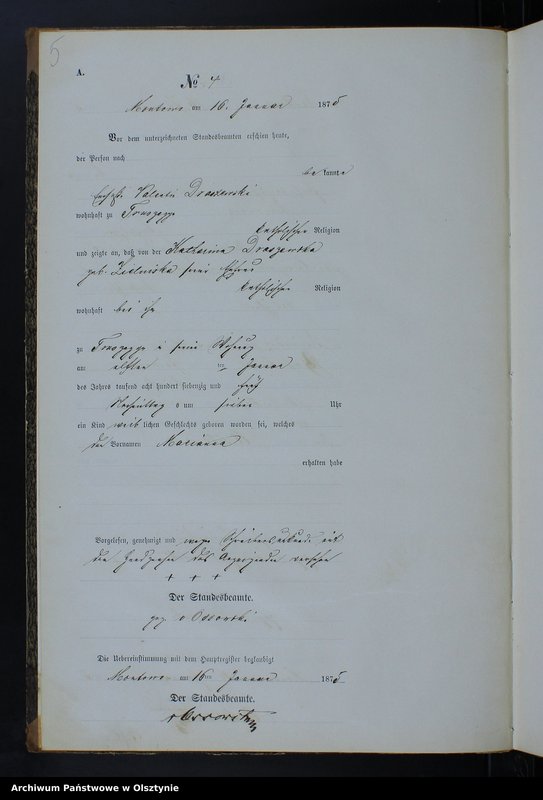 5
A.
No 4
Montowo am 16 Januar 1875
Vor dem unterzeichneten Standesbeamten erschien heute,
der Person nach
be kannte
Valentin Draszewski
wohnhaft zu
katholischer Religion
und zeigte an, daß von der Katharina Draszewska
geb. Zielinska seiner Ehefrau
katholischer Religion
wohnhaft bei ihm
zu in seiner Wohnung
am elften ten Januar
des Jahres tausend acht hundert siebenzig und fünf
Nachmittag s um sieben Uhr
ein Kind weib lichen Geschlechts geboren worden sei, welches
den Vornamen Marianna
erhalten habe
Vorgelesen, genehmigt und wegen Schreibensunkunde mit
den Handzeichen des Anzeigenden versehen
+ + +
Der Standesbeamte.
gez. v Ossowski
Die Uebereinstimmung mit dem Hauptregister beglaubigt
Montowo am 16ten Januar 1875
Der Standesbeamte.
v Ossowski
Archiwum Państwowe w Olsztynie